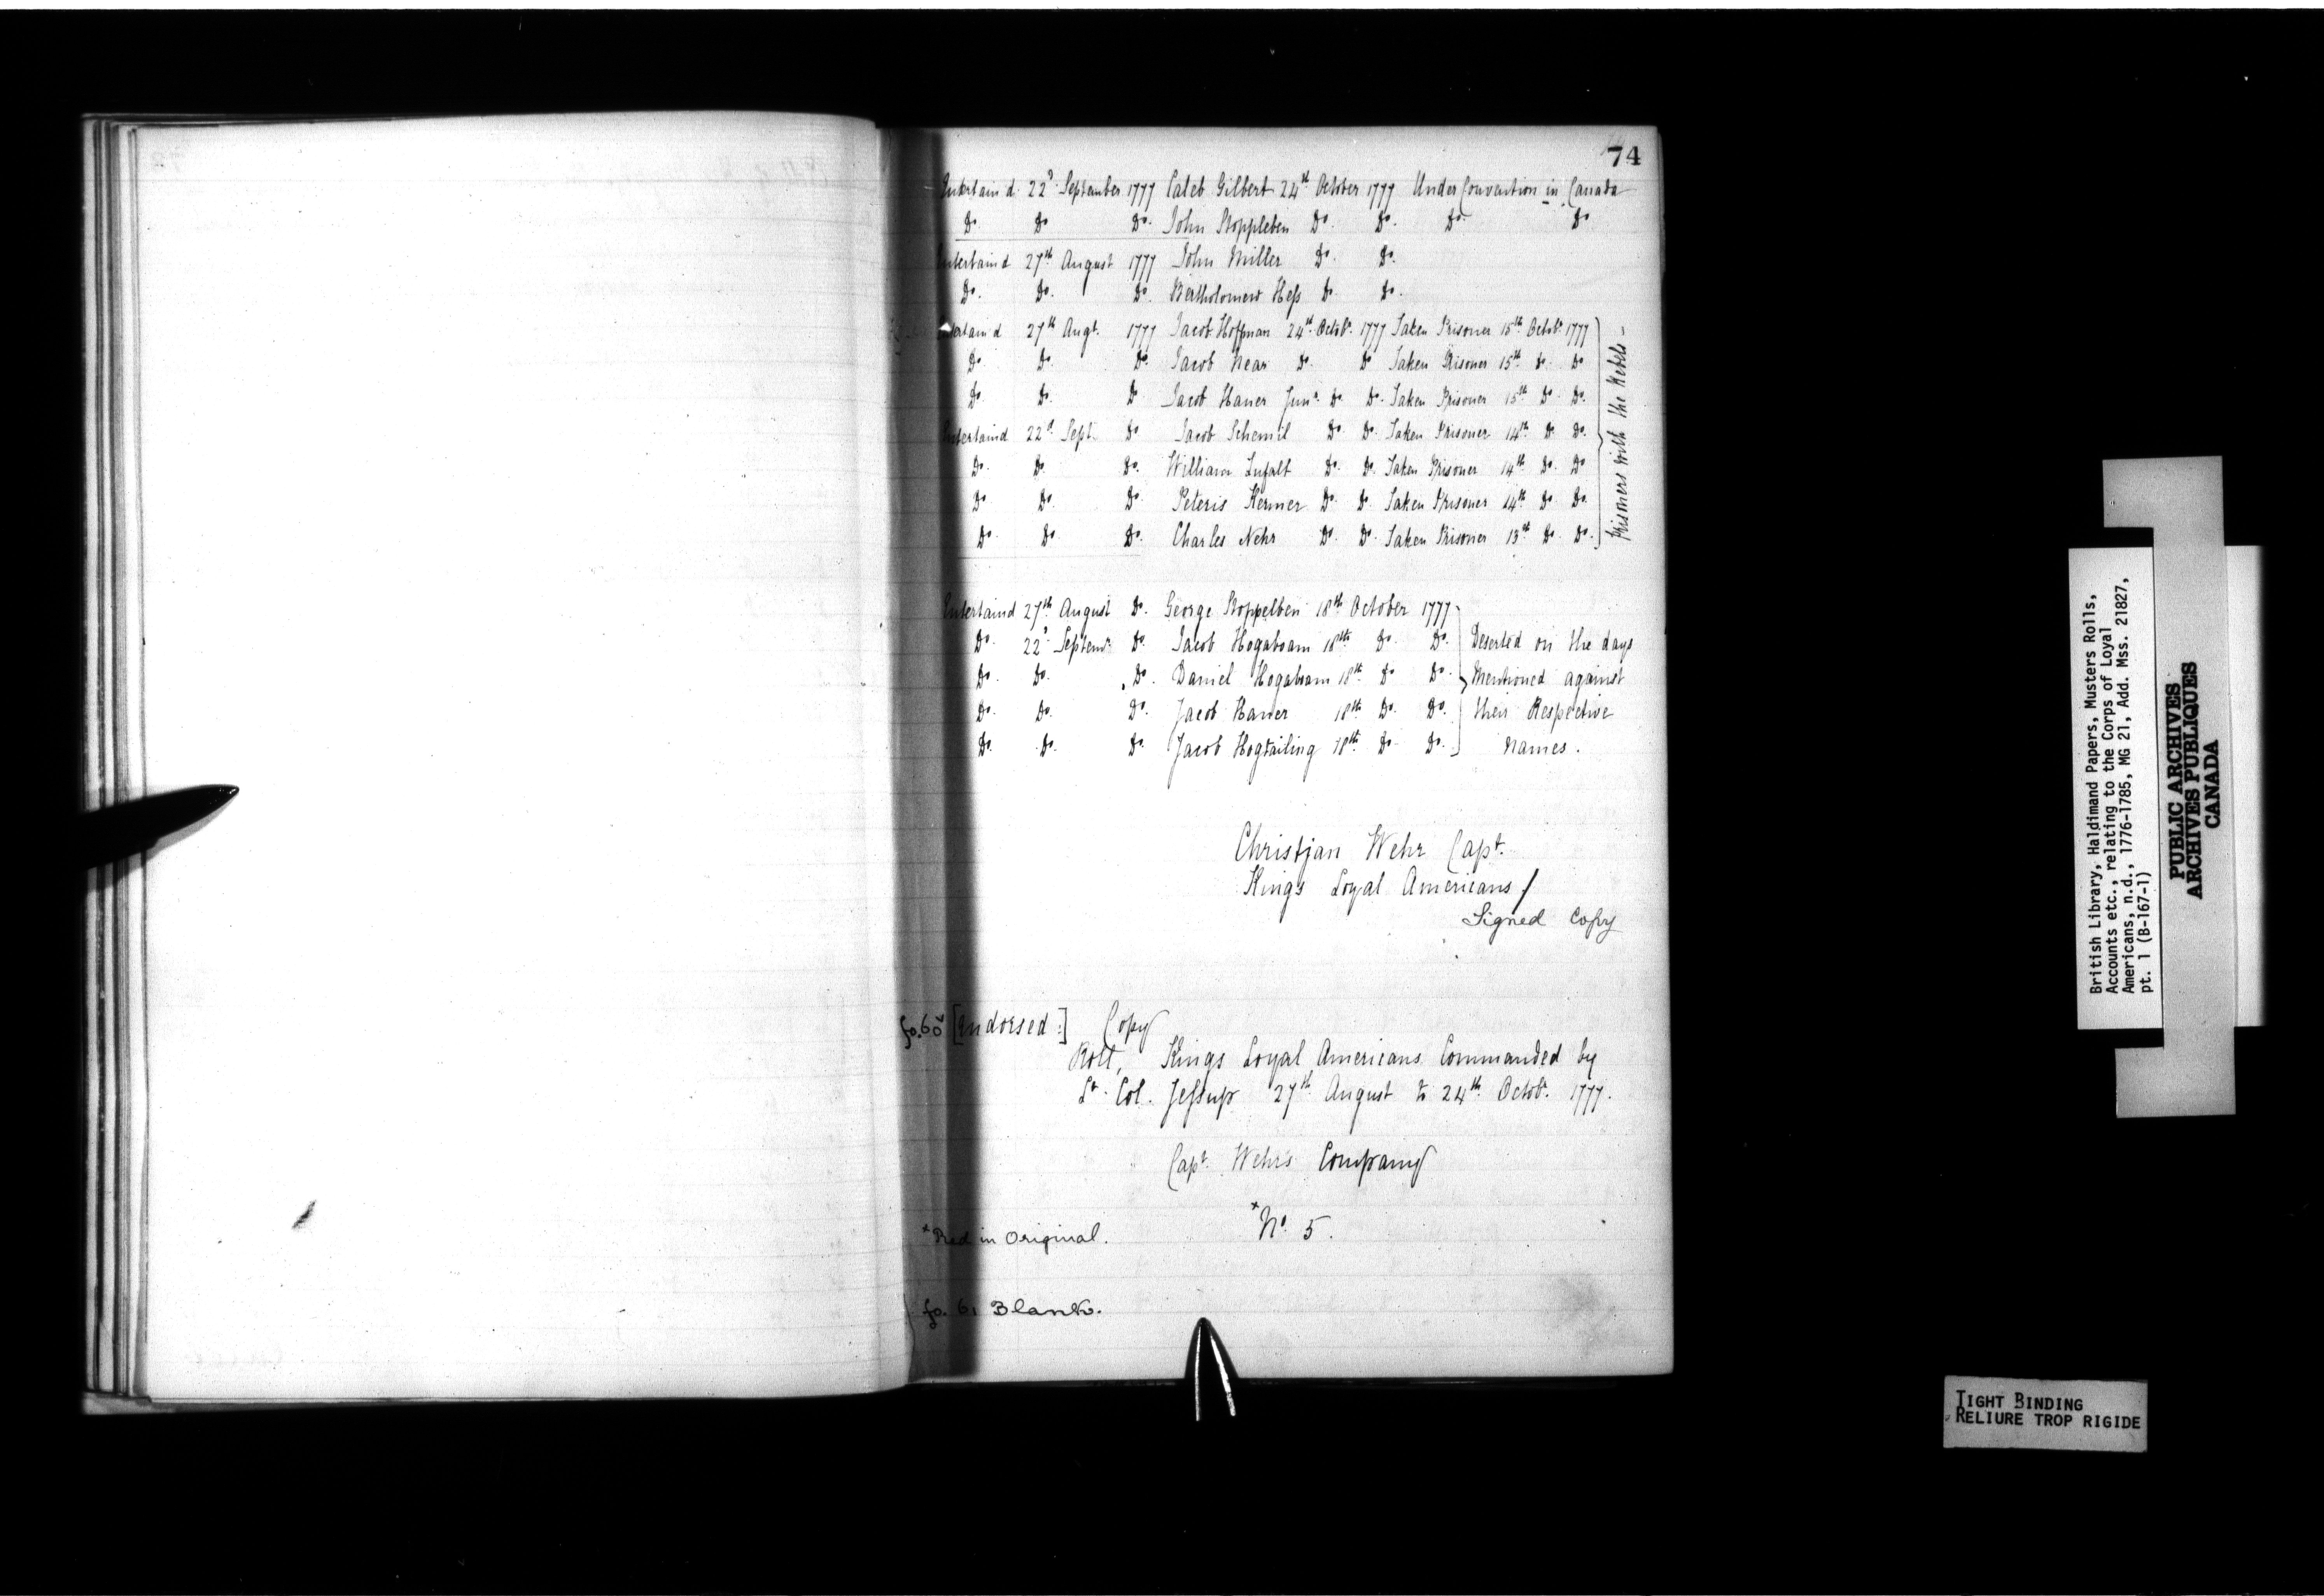 74
Entertain'd 22d September 1777 Caleb Gilbert 24th October 1777 Under Convention in Canada
Do. Do. Do. John Stoppleben Do. Do. Do. Do.
Entertaind 27th August 1777 John Miller Do. Do.
Do. Do. Do. Bartholomew Hess Do. Do.
Entertaind 27th Augt. 1777 Jacob Hoffman 24th Octobr. 1777 Taken Prisoner 15th Octobr. 1777
Do. Do. Do. Jacob Near Do. Do. Taken Prisoner 15th Do. Do.
Do. Do. Do. Jacob Haner Junr. Do. Do. Taken Prisoner 15th Do. Do.
Entertaind 22d Sept. Do. Jacob Schemil Do. Do. Taken Prisoner 14th Do. Do.
Do. Do. Do. William Do. Do. Taken Prisoner 14th Do. Do.
Do. Do. Do. Peteris Kermer Do. Do. Taken Prisoner 14th Do. Do.
Do. Do. Do. Charles Nehr Do. Do. Taken Prisoner 13th Do. Do.
Prisoners with the Rebels -
Entertaind 27th August Do. George Stoppelben 18th October 1777
Do. 22d Septemr. Do. Jacob Hogaboam 18th Do. Do. Deserted on the days
Do. Do. Do. Daniel Hogaboam 18th Do. Do. Mentioned against
Do. Do. Do. Jacob Haner 18th Do. Do. their Respective
Do. Do. Do. Jacob Hogtailing 18th Do. Do. Names.
Christjan Wehr Capt.
Kings Loyal Americans /
Signed Copy
fo. 60v [Endorsed:] Copy
Roll, Kings Loyal Americans Commanded by
Lt. Col. Jessup 27th August to 24th Octobr. 1777.
Capt. Wehr's Company
*No. 5.
*Red in Original.
fo. 61 Blank.
British Library, Haldimand Papers, Musters Rolls,
Accounts etc., relating to the Corps of Loyal
Americans, n.d., 1776-1785, MG 21, Add. Mss. 21827,
pt. 1 (B-167-1)
PUBLIC ARCHIVES
ARCHIVES PUBLIQUES
CANADA
TIGHT BINDING
RELIURE TROP RIGIDE